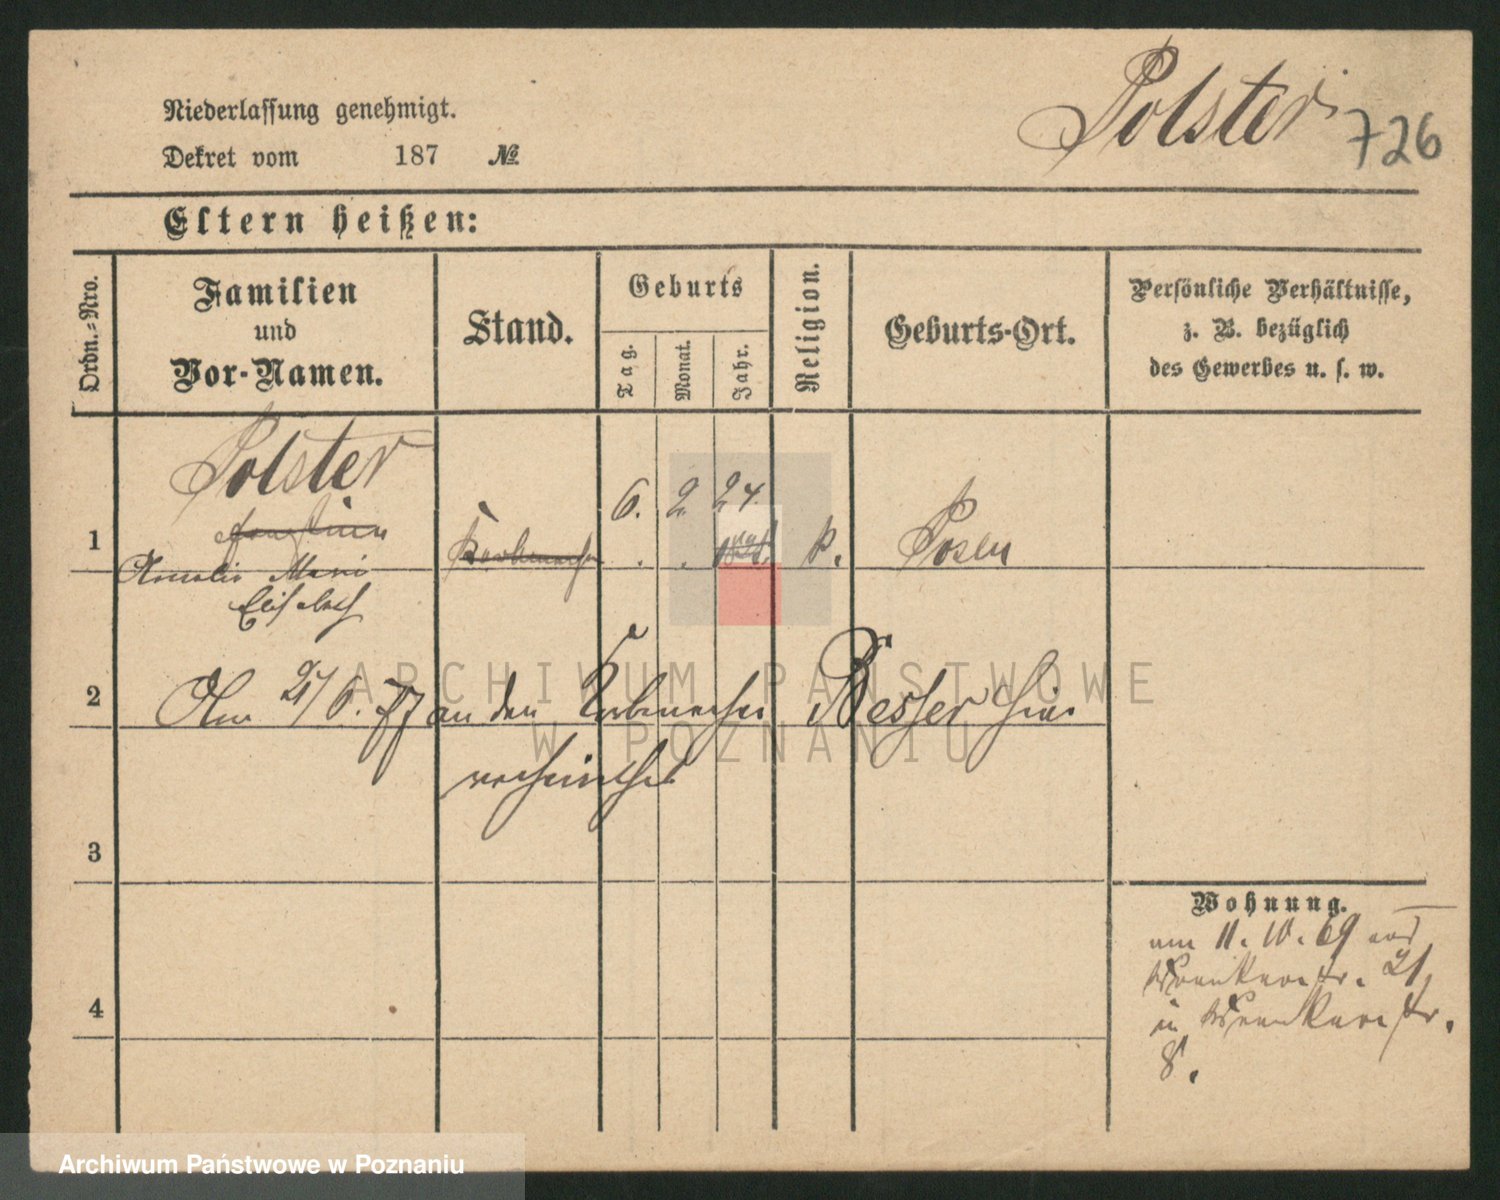 Polster
726
Niederlassung genehmigt.
Dekret vom 187 №
Eltern heißen:
Ordn.-Nro.
Familien
und
Vor-Namen.
Stand.
Geburts
Tag.
Monat.
Jahr.
Religion.
Geburts-Ort.
Persönliche Verhältnisse,
z. B. bezüglich
des Gewerbes u. s. w.
Polster
6. 2. 24.
1
Posen
Amalie Marie
Elisabeth
2
Am 21/6. 77 an den Korbmacher Besser hier
verheirathet
3
Wohnung.
am 11. 10. 69 aus
4
8.
ARCHIWUM PAŃSTWOWE
W POZNANIU
Archiwum Państwowe w Poznaniu